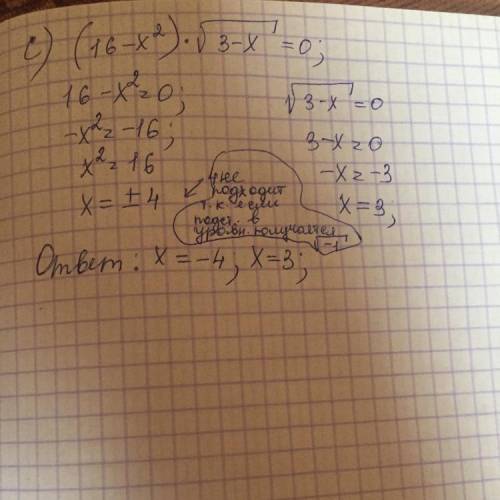 c) (16-x²)·√3-x =0;
16-x²=0;
-x²=-16;
x²=16
x=±4
√3-x =0
3-x=0
-x=-3
x=3,
4 не
подходит
т.к. если
подст. в
уровн. получается
√-1
Ответ: x=-4, x=3;